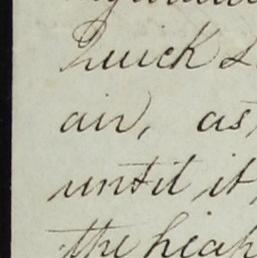 Quick L
air, as
until it
the heap